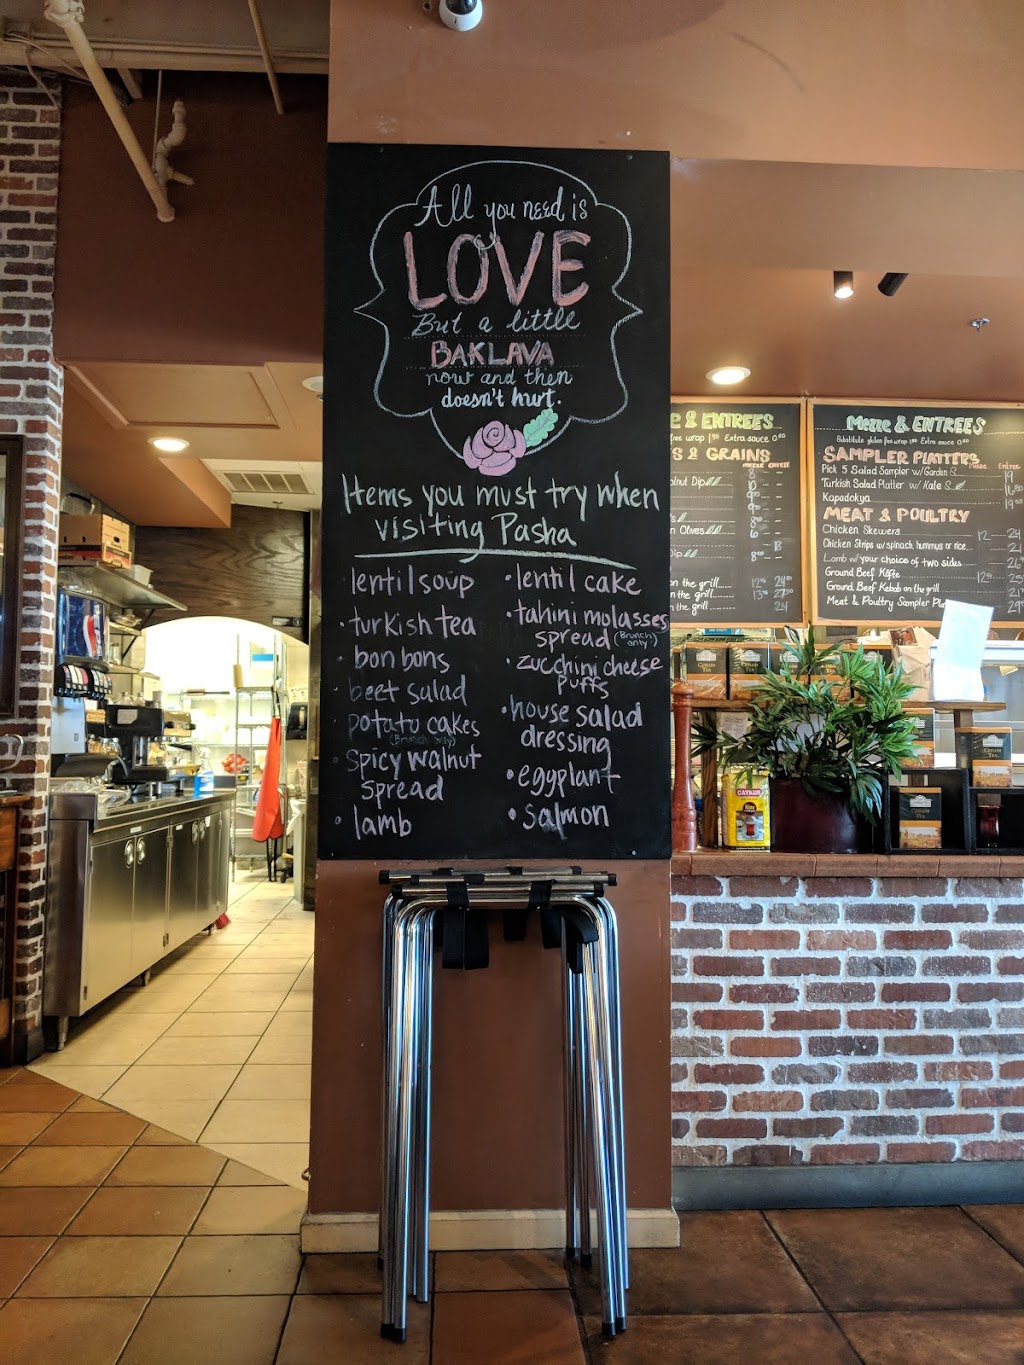 All you need is
LOVE
But a little
BAKLAVA
now and then
doesn't hurt.
Items you must try when
visiting Pasha
· lentil soup
· turkish tea
· bon bons
· beet salad
· potato cakes
(Brunch only)
· spicy walnut
spread
· lamb
· lentil cake
· tahini molasses
spread (Brunch only)
· zucchini cheese
puffs
· house salad
dressing
· eggplant
· salmon
e & ENTREES
free wrap 1.50 Extra sauce 0.60
S & GRAINS
alnut Dip
n Olives
Dip
on the grill
on the grill
n the grill
24
Mezze & ENTREES
Substitute gluten free wrap Extra sauce 0.60
SAMPLER PLATTERS
Mezze Entree
Pick 5 Salad Sampler w/ Garden S 19
Turkish Salad Platter w/ Kale S
Kapadokya
MEAT & POULTRY
Chicken Skewers 12
Chicken Strips w/ spinach, hummus or rice
Lamb w/ your choice of two sides
Ground Beef Köfte
Ground Beef Kebab on the grill
Meat & Poultry Sampler Pla
pepsi
CEYLON TEA
CEYLON TEA
CEYLON TEA
CEYLON TEA
ÇAYKUR